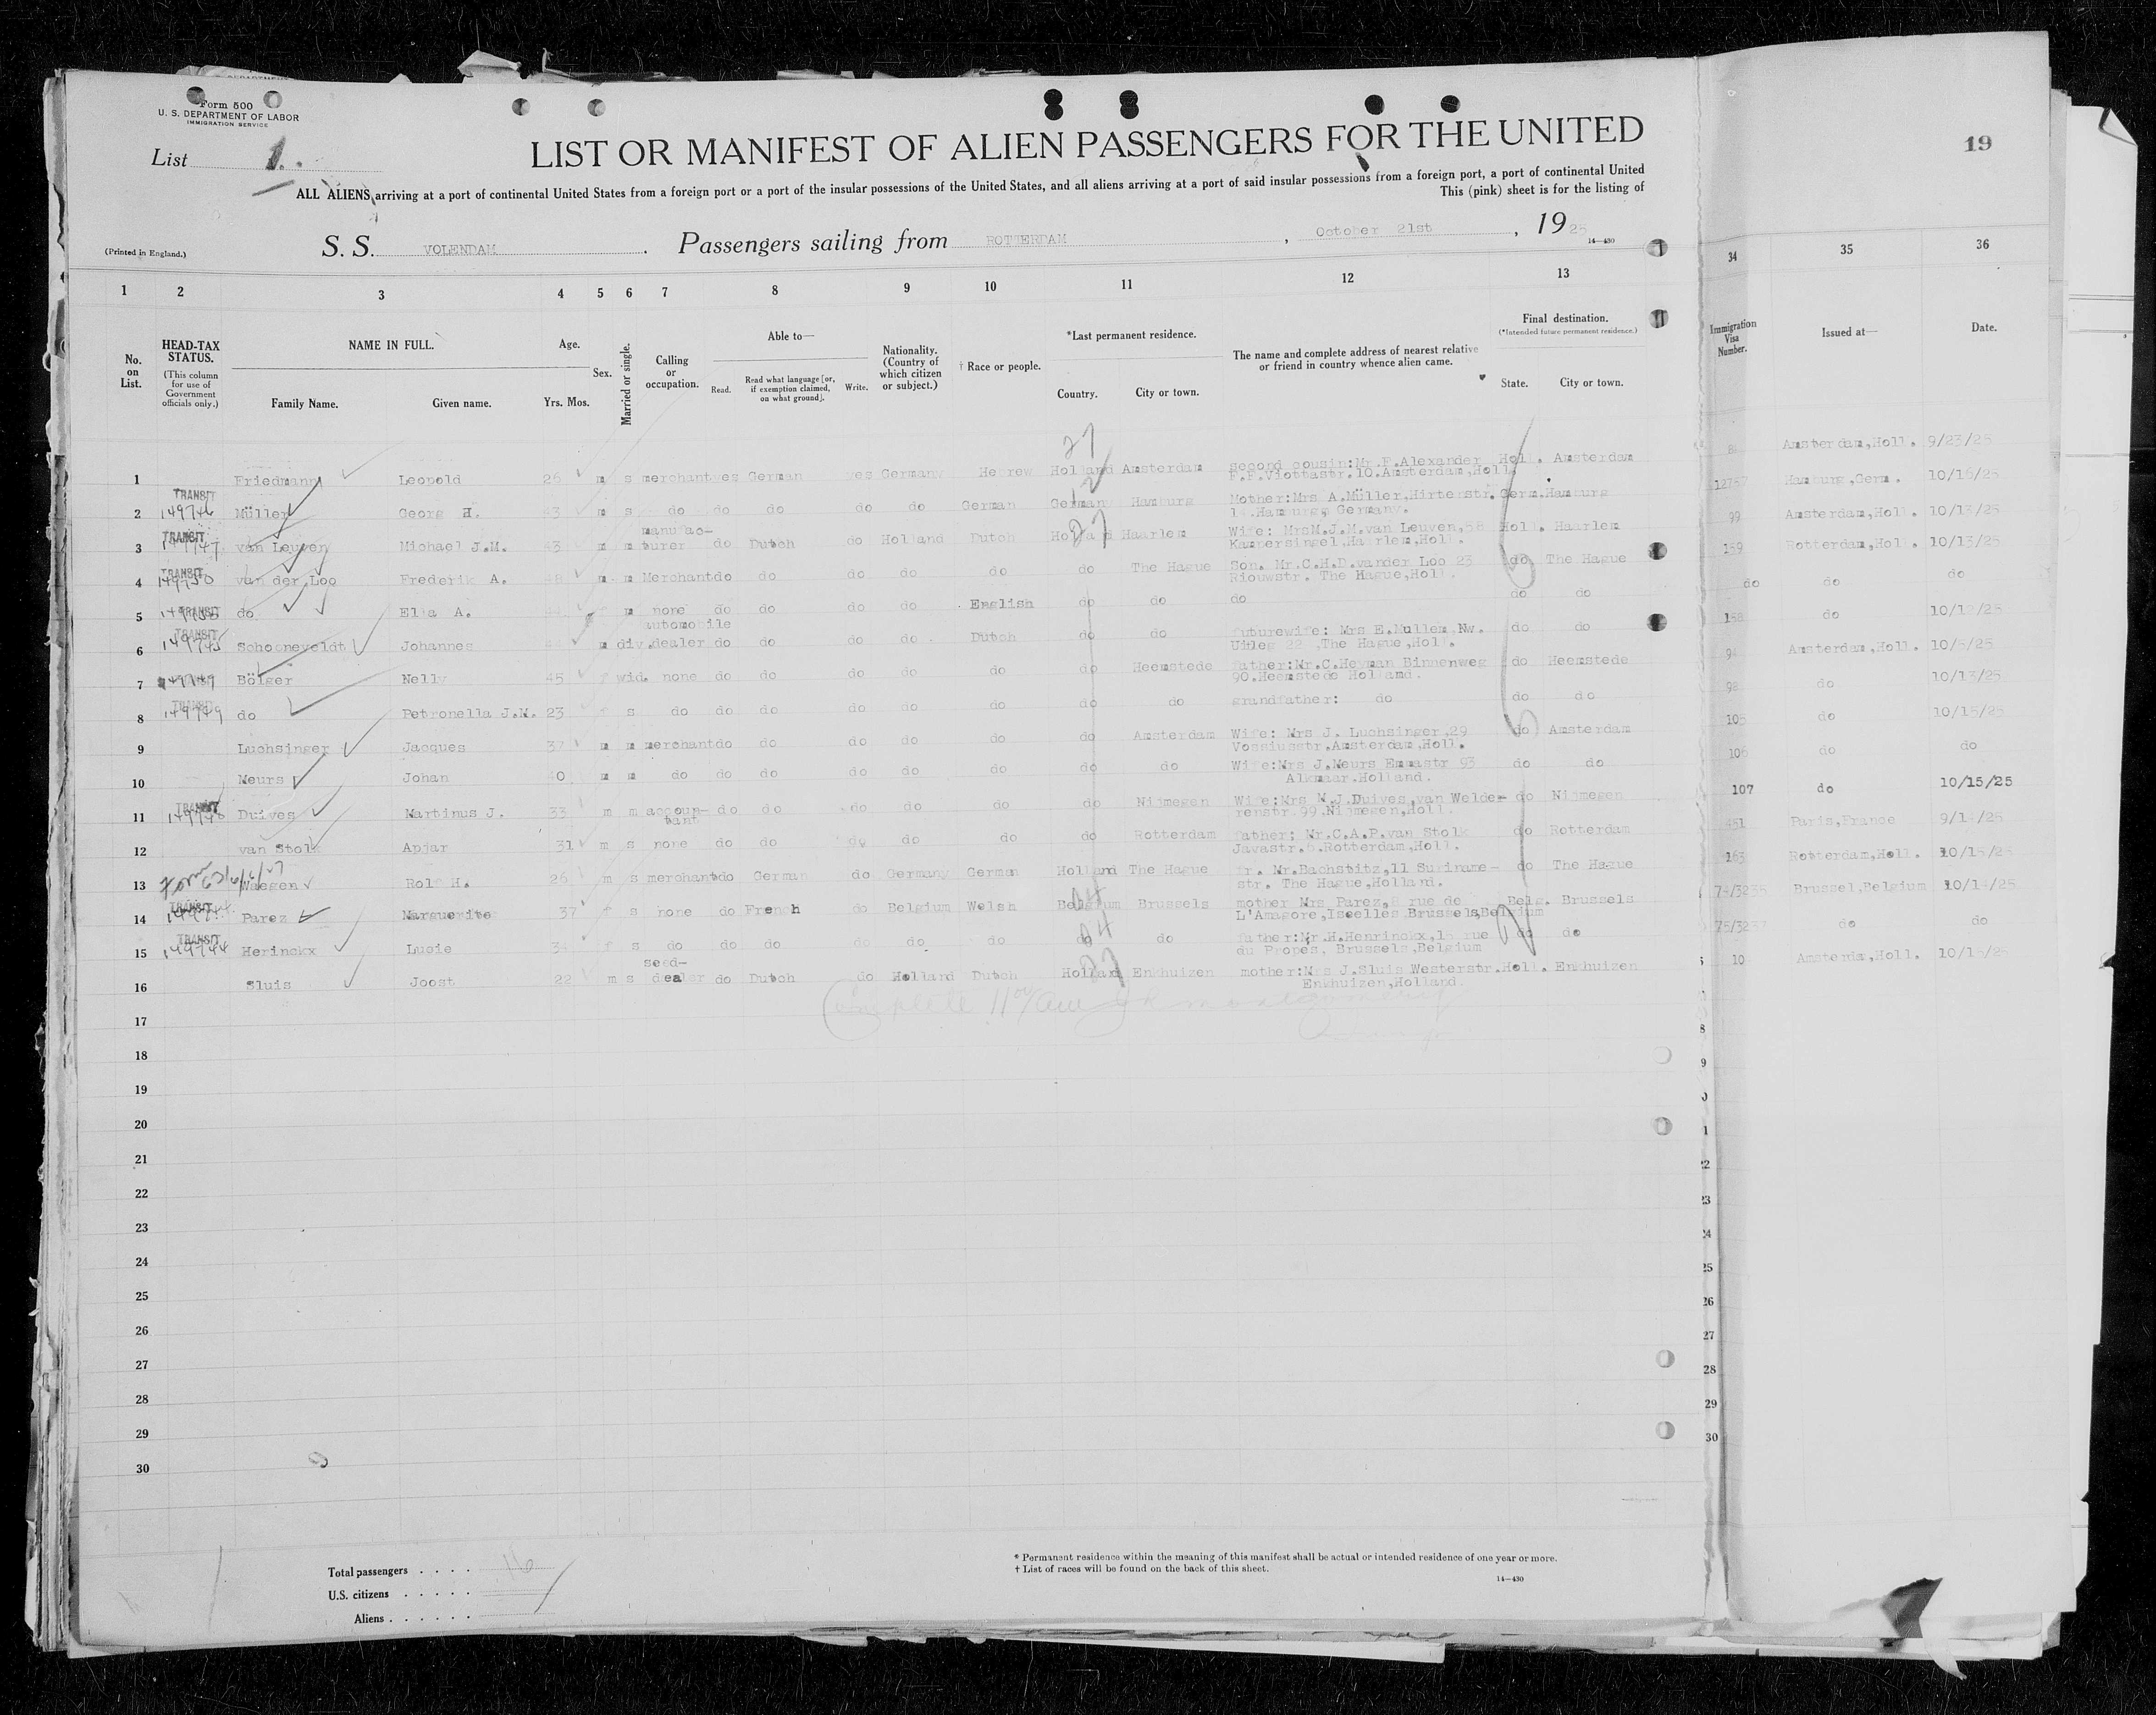 Form 500
U. S. DEPARTMENT OF LABOR
IMMIGRATION SERVICE
List 1.
LIST OR MANIFEST OF ALIEN PASSENGERS FOR THE UNITED
19
ALL ALIENS arriving at a port of continental United States from a foreign port or a port of the insular possessions of the United States, and all aliens arriving at a port of said insular possessions from a foreign port, a port of continental United
This (pink) sheet is for the listing of
(Printed in England.)
S. S. VOLENDAM. Passengers sailing from ROTTERDAM, October 21st, 1925
14—430
1 2 3 4 5 6 7 8 9 10 11 12 13 34 35 36
No. on List.
HEAD-TAX STATUS.
(This column for use of Government officials only.)
NAME IN FULL.
Family Name. Given name.
Age.
Yrs. Mos.
Sex.
Married or single.
Calling or occupation.
Able to—
Read. Read what language [or, if exemption claimed, on what ground]. Write.
Nationality. (Country of which citizen or subject.)
† Race or people.
*Last permanent residence.
Country. City or town.
The name and complete address of nearest relative or friend in country whence alien came.
Final destination.
(*Intended future permanent residence.)
State. City or town.
Immigration Visa Number.
Issued at—
Date.
27
1 Friedmann Leopold 26 m s merchant yes German yes Germany Hebrew Holland Amsterdam second cousin: Mr. F. Alexander Holl. Amsterdam Amsterdam, Holl. 9/23/25
F.F. Viottastr. 10. Amsterdam, Holl.
TRANSIT
2 149746 Müller Georg H. 43 m s do do do do do German Germany Hamburg Mother: Mrs A. Müller, Hirtenstr. Germ. Hamburg 12757 Hamburg, Germ. 10/16/25
Hamburg, Germany.
TRANSIT
3 149747 van Leuven Michael J.M. 43 m m manufacturer do Dutch do Holland Dutch Holland Haarlem Wife: Mrs M.J.M. van Leuven, 58 Holl. Haarlem 99 Amsterdam, Holl. 10/13/25
Kampersingel, Haarlem, Holl.
TRANSIT
4 149750 van der Loo Frederik A. 48 m m Merchant do do do do do do The Hague Son. Mr. C.H.D. vander Loo 23 do The Hague 159 Rotterdam, Holl. 10/13/25
Riouwstr. The Hague, Holl.
TRANSIT
5 do Ella A. m none do do do do English do do do do do do do do
TRANSIT
6 149745 Schooneveldt Johannes m div. automobile dealer do do do do Dutch do do futurewife: Mrs E. Mullem, Nw. do do 158 do
Uitleg 22, The Hague, Holl.
7 149749 Bölger Nelly 45 f wid. none do do do do do do Heemstede father: Mr. C. Heyman Binnenweg do Heemstede Amsterdam, Holl. 10/5/25
90. Heemstede Holland.
TRANSIT
8 149749 do Petronella J.M. 23 f s do do do do do do do do grandfather: do do do 98 do 10/13/25
9 Luchsinger Jacques 37 m m merchant do do do do do do Amsterdam Wife: Mrs J. Luchsinger, 29 do Amsterdam 105 do 10/15/25
Vossiusstr. Amsterdam, Holl.
10 Meurs Johan 40 m m do do do do do do do do Wife: Mrs J. Meurs Emmastr 93 do do 106 do do
Alkmaar. Holland.
TRANSIT
11 149748 Duives Martinus J. 33 m m accoun-tant do do do do do do Nijmegen Wife: Mrs M.J. Duives, van Welde- do Nijmegen 107 do 10/15/25
renstr. 99. Nijmegen, Holl.
12 van Stolk Apjar 31 m s none do do do do do do Rotterdam father: Mr. C.A.P. van Stolk do Rotterdam 451 Paris, France
Javastr. Rotterdam, Holl.
13 Waegen Rolf H. 26 m s merchant do German do Germany German Holland The Hague Mr. Bachstitz, 11 Suriname- do The Hague 163 Rotterdam, Holl. 10/15/25
str. The Hague, Holland.
TRANSIT
14 Parez Marguerite 37 f s none do French do Belgium Welsh Belgium Brussels mother Mrs Parez, 8 rue de Belg. Brussels 74/3236 Brussel, Belgium 10/14/25
L'Amagore, Iselles Brussels, Belgium
TRANSIT
15 149744 Herinckx Lucie 34 f s do do do do do do do do father: Mr. H. Henrinckx, 15 rue do do 75/3237 do do
du Propes. Brussels, Belgium
16 Sluis Joost 22 m s seed-dealer do Dutch do Holland Dutch Holland Enkhuizen mother: Mrs J. Sluis Westerstr. Holl. Enkhuizen 10 Amsterda, Holl. 10/15/25
Enkhuizen, Holland.
17
18
19
20
21
22
23
24
25
26
27
28
29
30
Total passengers . . . . 16
U.S. citizens . . . . .
Aliens . . . . . .
* Permanent residence within the meaning of this manifest shall be actual or intended residence of one year or more.
† List of races will be found on the back of this sheet.
14—430